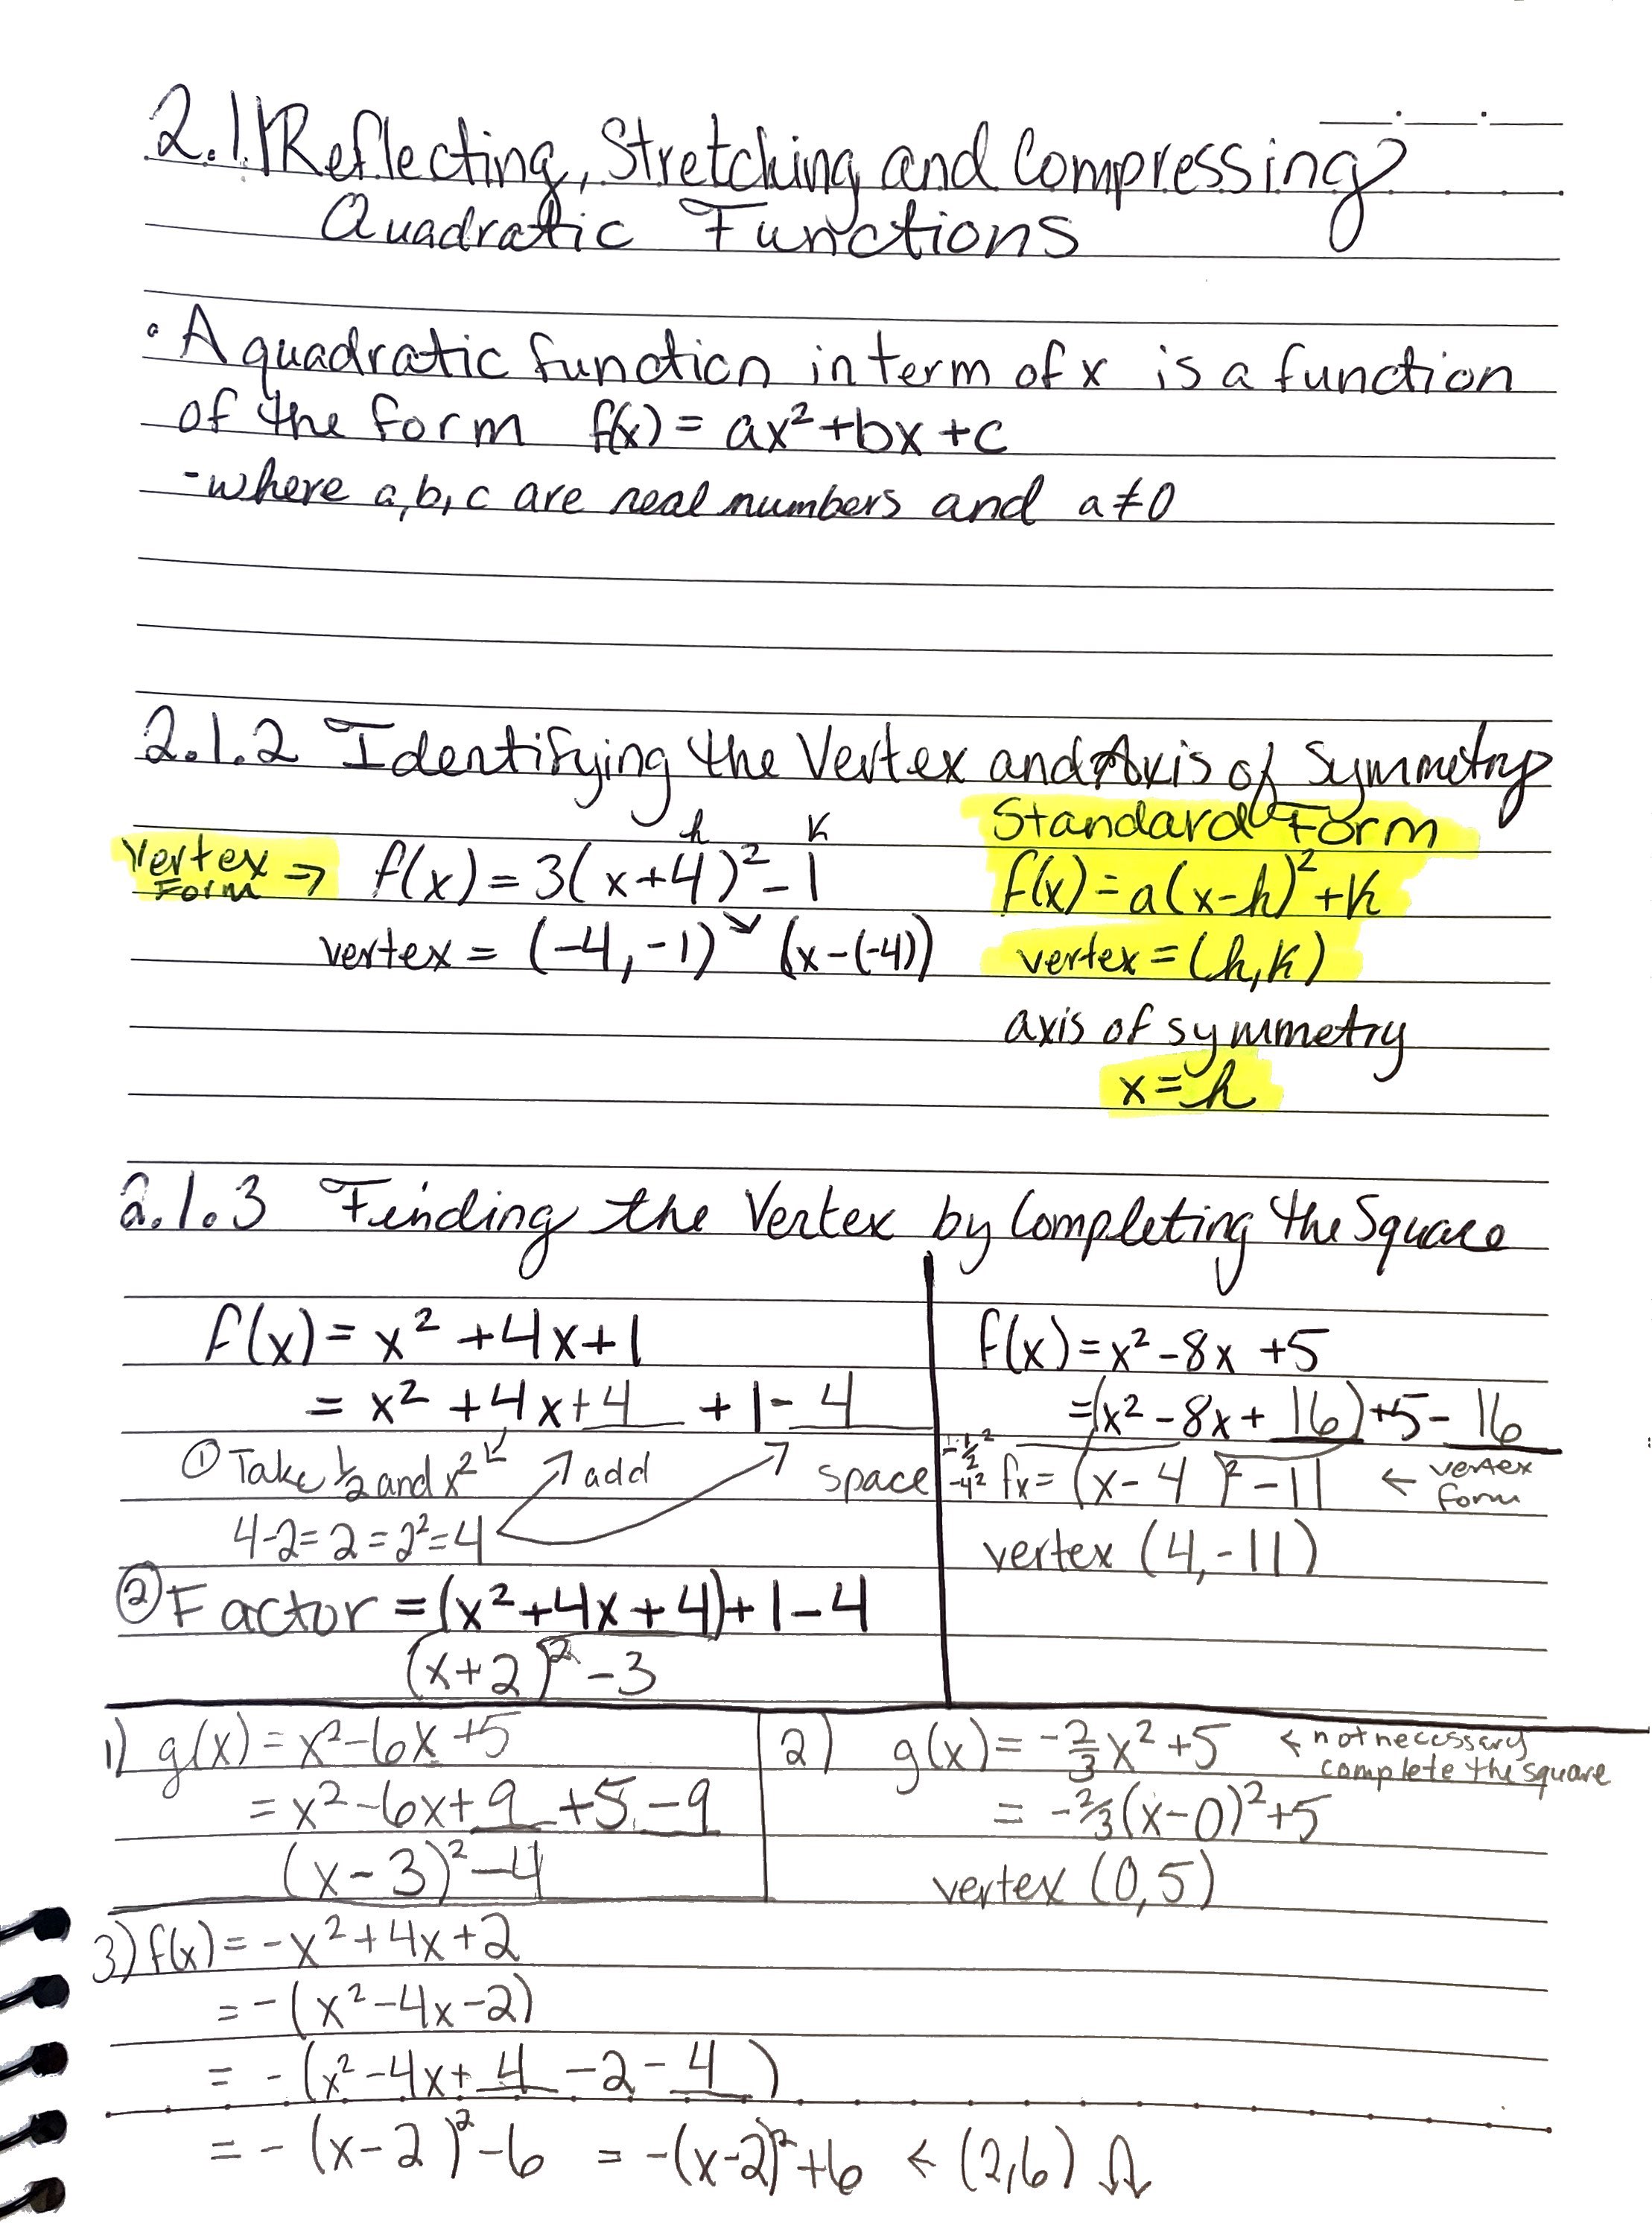 2.1.1 Reflecting, Stretching and Compressing
Quadratic Functions
• A quadratic function in term of x is a function
of the form f(x) = ax²+bx+c
-where a,b,c are real numbers and a≠0
2.1.2 Identifying the Vertex and Axis of Symmetry
Standard Form
h k
Vertex Form → f(x) = 3(x+4)²-1
f(x) = a(x-h)²+k
vertex = (-4,-1) (x-(-4))
vertex = (h,k)
axis of symmetry
x=h
2.1.3 Finding the Vertex by Completing the Square
f(x) = x² +4x+1
= x² +4x+ 4 + 1- 4
① Take ½ and x² ↗ add
space
4-2=2=2²=4
② Factor = (x²+4x+4)+1-4
(x+2)² -3
f(x)=x²-8x +5
=(x²-8x+ 16)+5- 16
-½²
-4² fx= (x-4)²-11 ← vertex form
vertex (4,-11)
1) g(x) = x²-6x+5
= x²-6x+9 +5-9
(x-3)²-4
2) g(x) = -2/3 x²+5 ← not necessary
complete the square
= -⅔(x-0)²+5
vertex (0,5)
3) f(x) = -x²+4x+2
= -(x²-4x-2)
= -(x²-4x+ 4 -2- 4 )
= -(x-2)²-6 = -(x-2)²+6 ← (2,6)